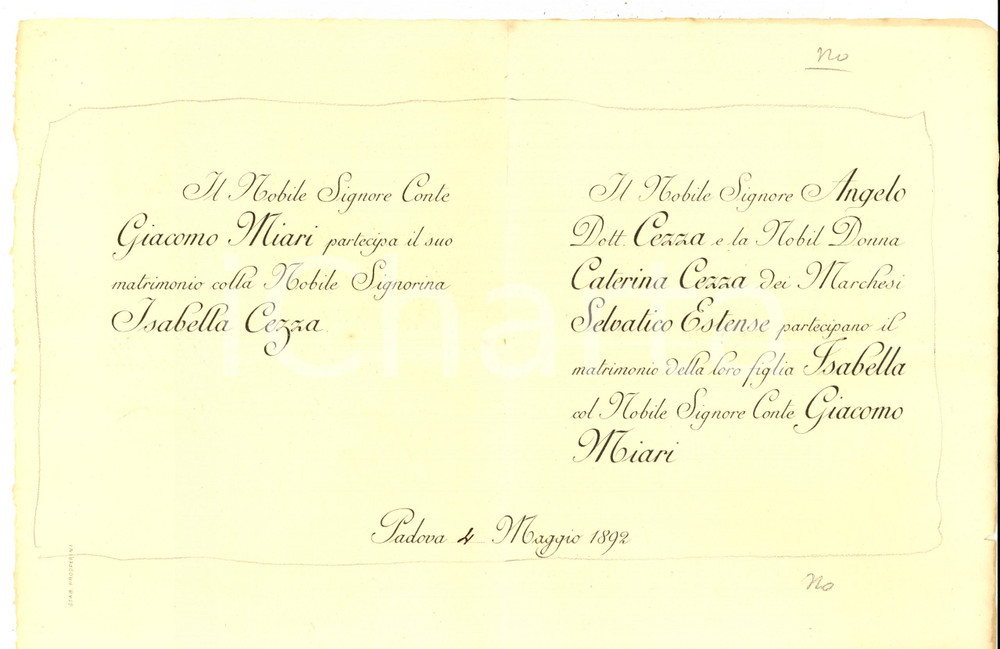 no
Il Nobile Signore Conte
Giacomo Miari partecipa il suo
matrimonio colla Nobile Signorina
Isabella Cezza.
Il Nobile Signore Angelo
Dott. Cezza e la Nobil Donna
Caterina Cezza dei Marchesi
Selvatico Estense partecipano il
matrimonio della loro figlia Isabella
col Nobile Signore Conte Giacomo
Miari
Padova 4 Maggio 1892
no
STAB. PROSPERINI
iCharta